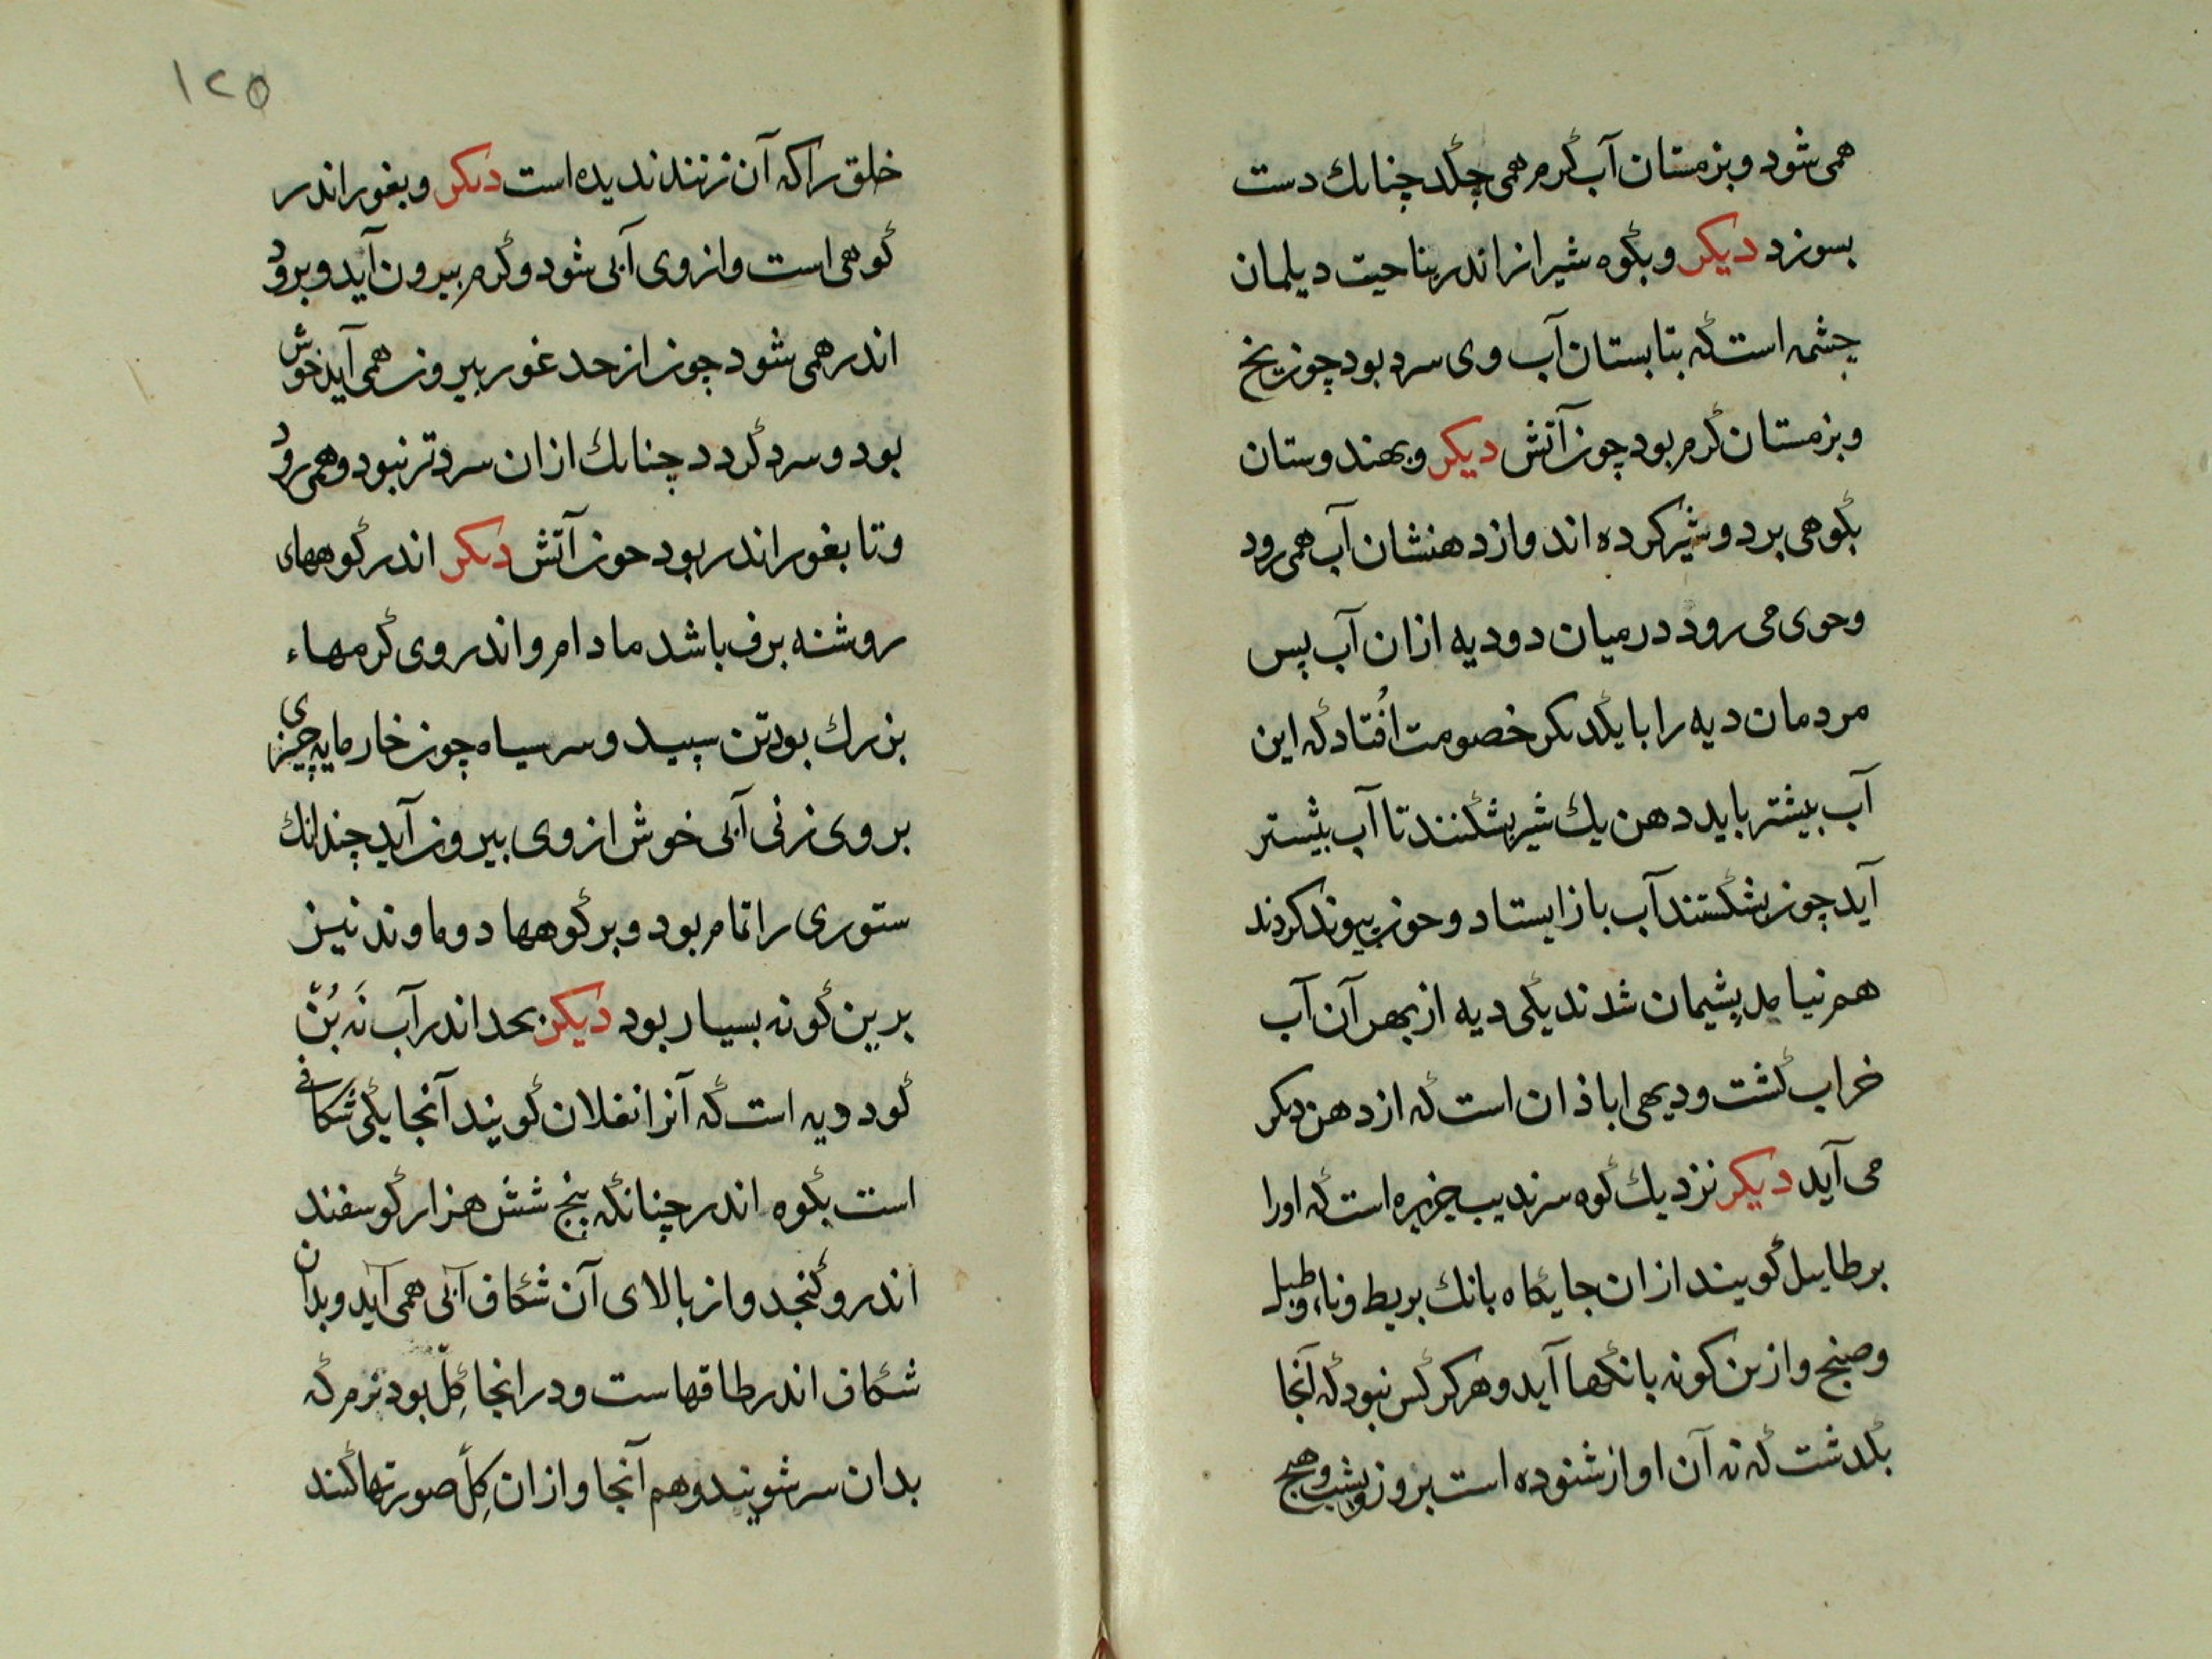 همی شود و بزمستان آب گرم همی چکد چنانك دست
بسوزد دیکر و بکوه شیراز اندر بناحیت دیلمان
چشمه است که بتابستان آب وی سرد بود چون یخ
و بزمستان گرم بود چون آتش دیکر و بهندوستان
بکوهی بر دو شیر کرده اند و از دهنشان آب همی رود
وحوی می رود در میان دو دیه ازان آب پس
مردمان دیه را با یکدیکر خصومت اُفتاد که این
آب بیشتر باید دهن یك شیر بشکنند تا آب بیشتر
آید چون بشکستند آب باز ایستاد و حون پیوند کردند
هم نیامد پشیمان شدند یکی دیه از بهر آن آب
خراب گشت و دیهی اباذان است که از دهن دیکر
می آید دیکر نزدیك کوه سرندیب جزیره است که اورا
برطاییل گویند ازان جایکاه بانك بربط و ناء و طبل
وصنج و ازین کونه بانگها آید و هرکز کس نبود که آنجا
بگذشت که نه آن اواز شنوده است بروز و بشب و هیچ
۱۲۵
خلق را که آن زنند ندیده است دیکر و بغور اندر
کوهی است و از وی آبی شود و گرم بیرون آید و برود
اندر همی شود چون از حد غور بیرون همی آید خوش
بود و سرد گردد چنانك ازان سردتر نبود و همی رود
و تا بغور اندر بود حون آتش دیکر اندر کوههای
روشنه برف باشد مادام و اندر وی گرمهاء
بزرك بود تن سپید و سر سیاه چون خارمایه چیزی
بر وی زنی آبی خوش از وی بیرون آید چندانك
ستوری را تمام بود و بر کوهها دوماوند نیز
برین گونه بسیار بود دیکر بحد اندر آب نَه بُنّ
کود دیه است که آنرا نغلان گویند آنجا یکی شکافی
است بکوه اندر چنانکه پنج شش هزار گوسفند
اندرو گنجد و از بالای آن شکاف آبی همی آید و بدان
شکاف اندر طاقهاست و در انجا گِلّ بود نرم که
بدان سر شویند و هم آنجا و ازان گِلّ صورتها کنند